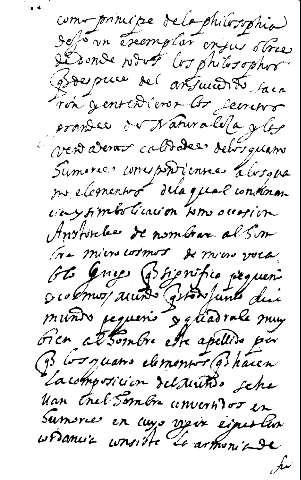 como principe de la philosophia
dejo un exemplar en sus obras
de donde todos los philosophos
q despues del an suido saca
ron y entendieron los secretos
grandes de Naturaleza y las
verdaderas calidades de los quatro
humores correspondientes a los qua
tro elementos de la qual
cia y simbolicacion tomo occasion
Aristoteles de nombrar al hom
bre microcosmos de micro voca
blo Griego q significa pequeño
y cosmos mundo q todo junto dice
mundo pequeño y quadrale muy
bien al hombre este apellido por
q los quatro elementos q hacen
la composicion del Mundo se ha
llan en el hombre convertidos en
humores en cuyo union
cordancia consiste la armonia de
su